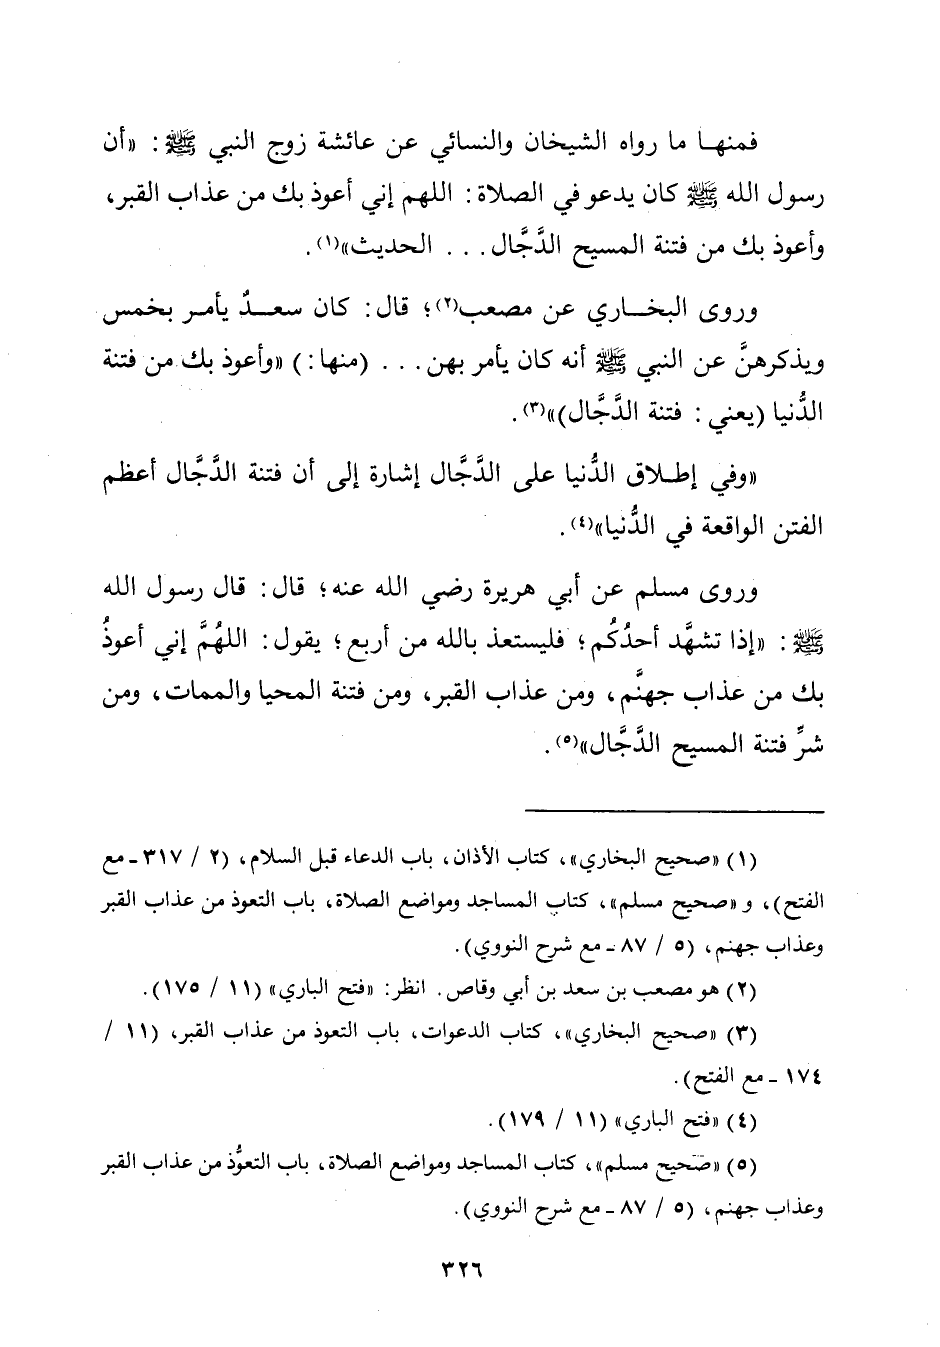 فمنهـا ما رواه الشيخان والنسائي عن عائشة زوج النبي ﷺ: «أن
رسول الله ﷺ كان يدعو في الصلاة: اللهم إني أعوذ بك من عذاب القبر،
وأعوذ بك من فتنة المسيح الدَّجَّال... الحديث»(١).
وروى البخـاري عن مصعب(٢)؛ قال: كان سعـدٌ يأمـر بخمس
ويذكرهنَّ عن النبي ﷺ أنه كان يأمر بهن... (منها:) «وأعوذ بك من فتنة
الدُّنيا (يعني: فتنة الدَّجَّال)»(٣).
«وفي إطـلاق الدُّنيا على الدَّجَّال إشارة إلى أن فتنة الدَّجَّال أعظم
الفتن الواقعة في الدُّنيا»(٤).
وروى مسلم عن أبي هريرة رضي الله عنه؛ قال: قال رسول الله
ﷺ: «إذا تشهَّد أحدُكُم؛ فليستعذ بالله من أربع؛ يقول: اللهُمَّ إني أعوذُ
بك من عذاب جهنَّم، ومن عذاب القبر، ومن فتنة المحيا والممات، ومن
شرِّ فتنة المسيح الدَّجَّال»(٥).
(١) «صحيح البخاري»، كتاب الأذان، باب الدعاء قبل السلام، (٢ / ٣١٧ ـ مع
الفتح)، و «صحيح مسلم»، كتاب المساجد ومواضع الصلاة، باب التعوذ من عذاب القبر
وعذاب جهنم، (٥ / ٨٧ ـ مع شرح النووي).
(٢) هو مصعب بن سعد بن أبي وقاص. انظر: «فتح الباري» (١١ / ١٧٥).
(٣) «صحيح البخاري»، كتاب الدعوات، باب التعوذ من عذاب القبر، (١١ /
١٧٤ ـ مع الفتح).
(٤) «فتح الباري» (١١ / ١٧٩).
(٥) «صحيح مسلم»، كتاب المساجد ومواضع الصلاة، باب التعوُّذ من عذاب القبر
وعذاب جهنم، (٥ / ٨٧ ـ مع شرح النووي).
٣٢٦